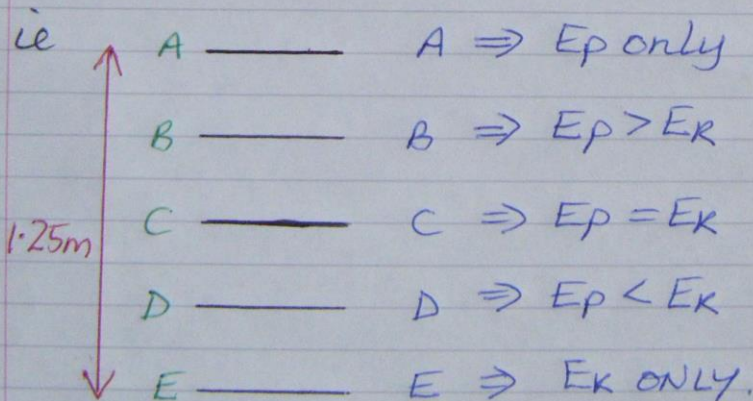 ie A A ⇒ Ep only
B B ⇒ Ep > EK
C C ⇒ Ep = EK
1.25m
D D ⇒ Ep < EK
E E ⇒ EK ONLY.